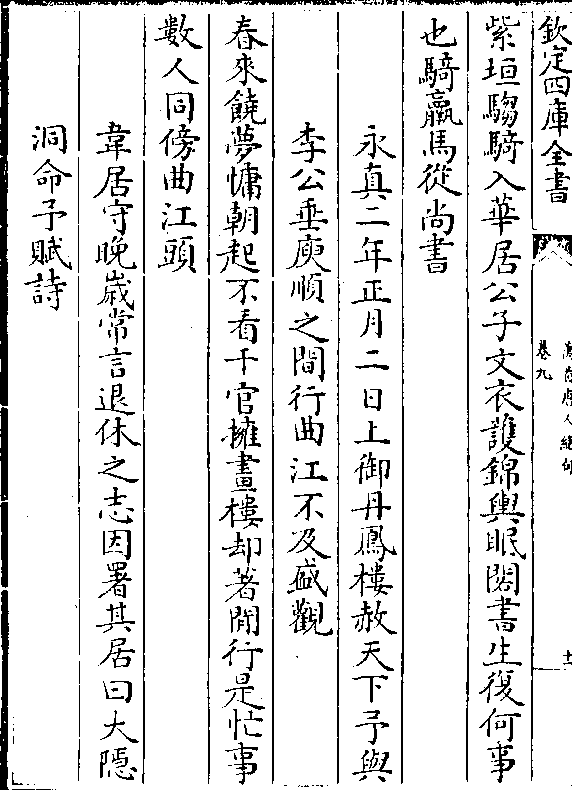 欽定四庫全書
萬首唐人絶句
卷九
十一
紫垣騶騎入華居公子文衣護錦輿眠閣書生復何事
也騎羸馬從尚書
永真二年正月二日上御丹鳳樓赦天下予與
李公垂庾順之間行曲江不及盛觀
春來饒夢慵朝起不看千官擁畫樓却著閒行是忙事
數人同傍曲江頭
韋居守晚歲常言退休之志因署其居曰大隱
洞命予賦詩